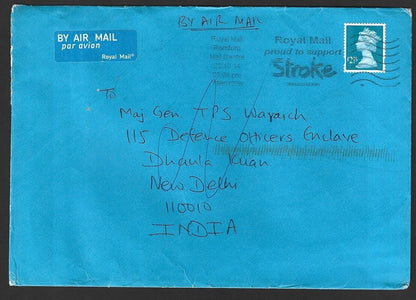 BY AIR MAIL
BY AIR MAIL
par avion
Royal Mail®
Royal Mail
Romford
Mail Centre
Royal Mail
proud to support
Stroke
association
To
Maj Gen TPS Waraich
115 Defence Officers Enclave
Dhaula Kuan
New Delhi
110010
INDIA